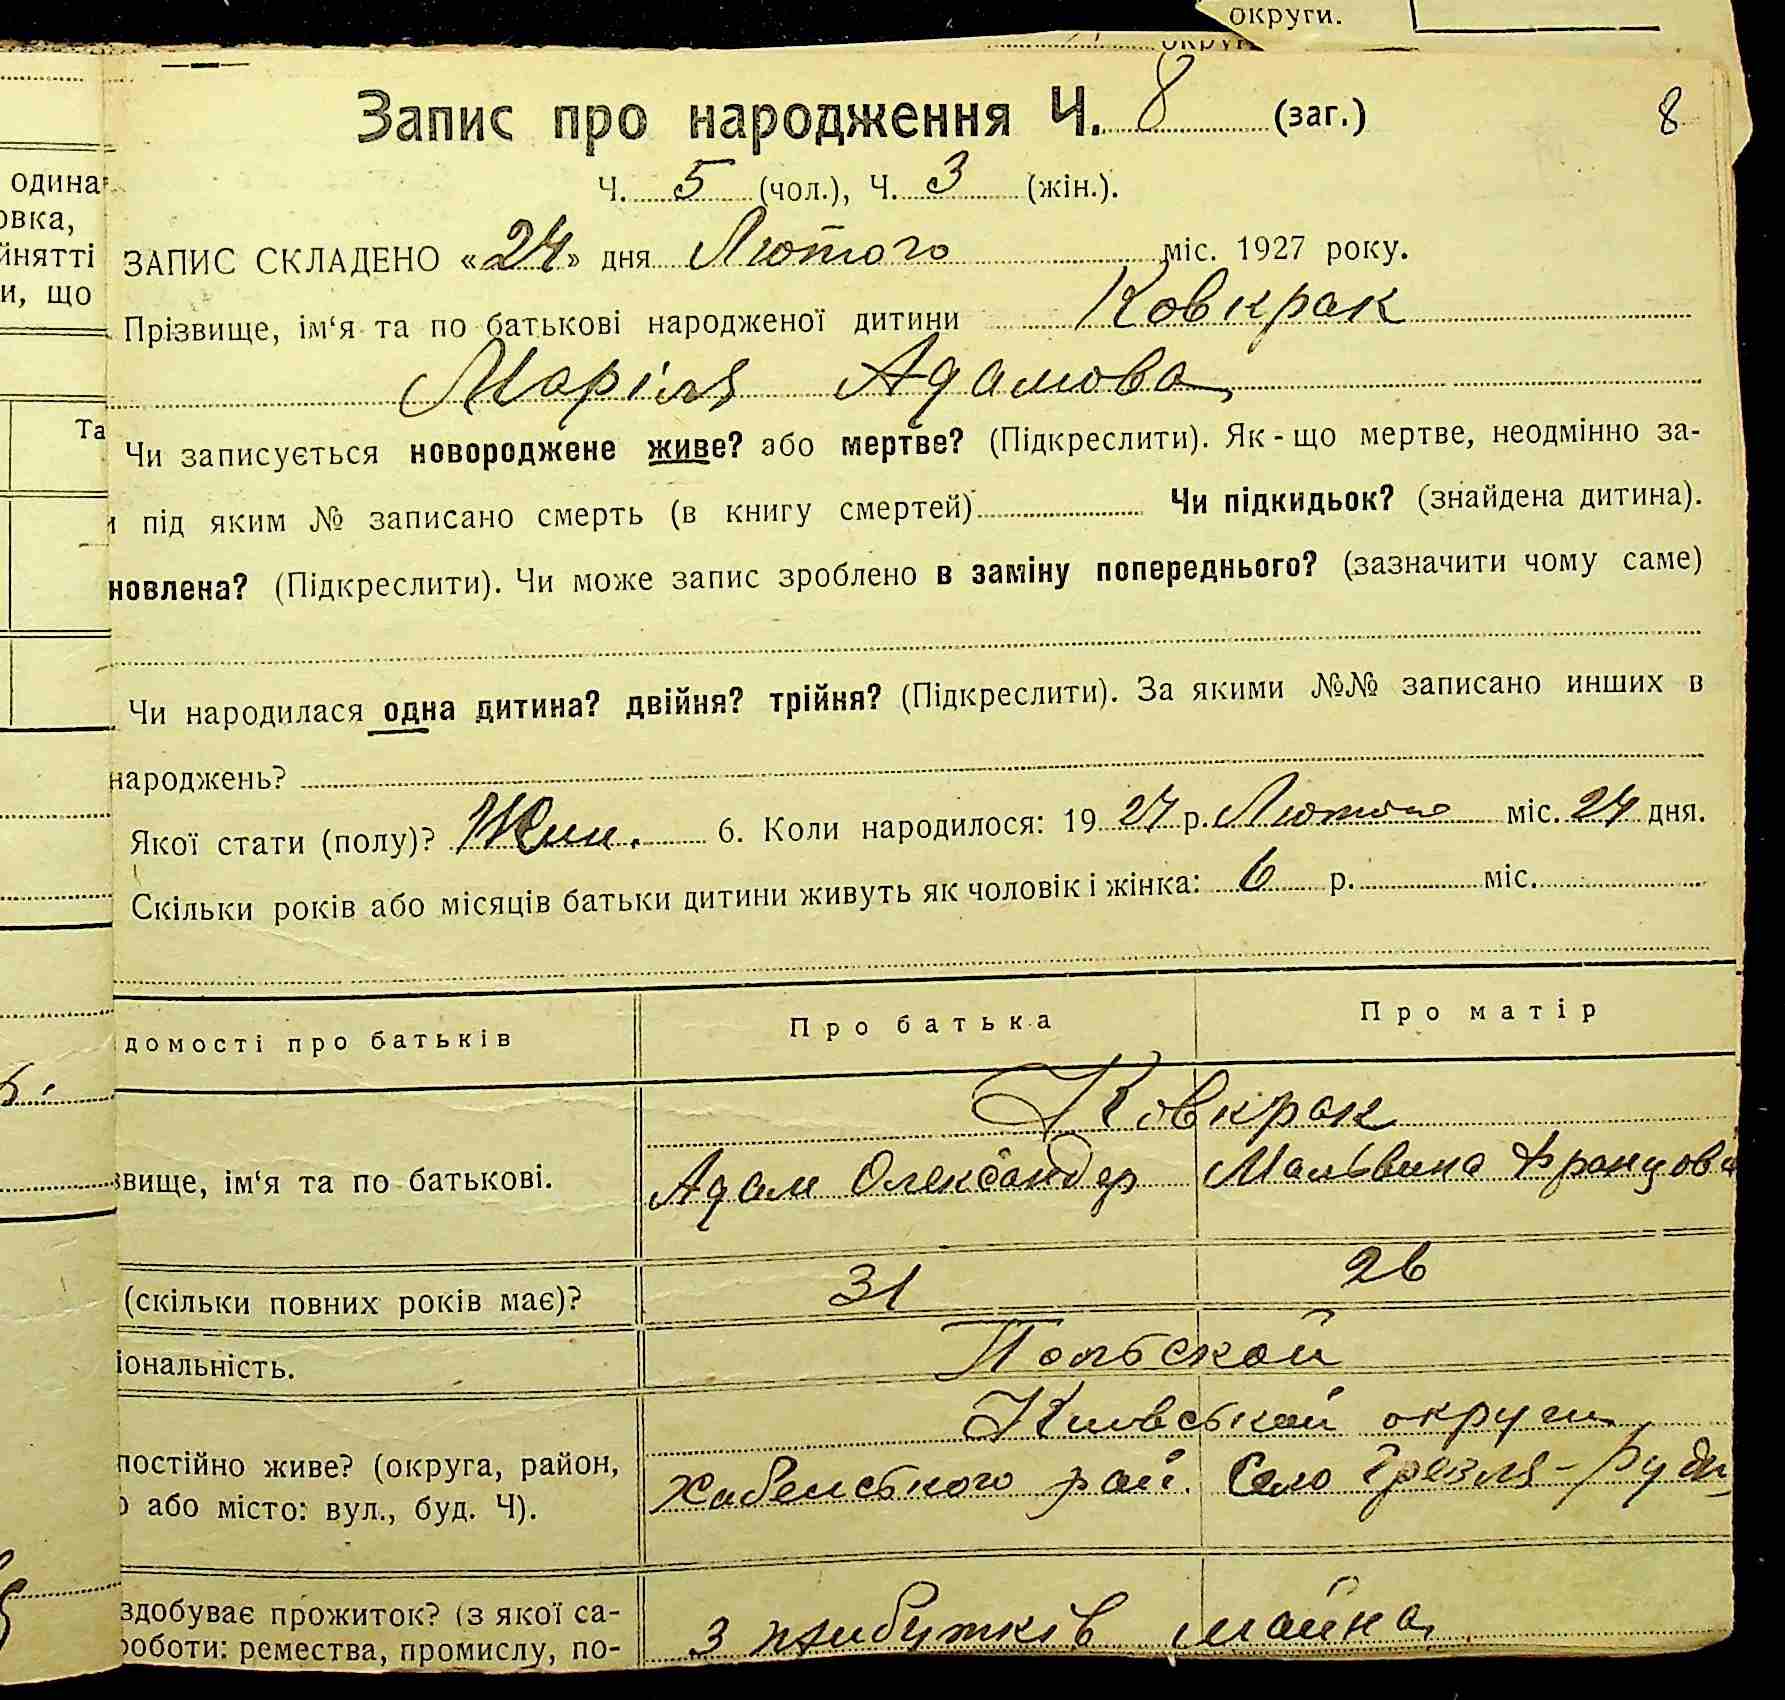 округи.
округ
Запис про народження Ч. 8 (заг.) 8
Ч. 5 (чол.), Ч. 3 (жін.).
одина
овка,
йнятті
и, що
Та
ЗАПИС СКЛАДЕНО «24» дня Лютого міс. 1927 року.
Прізвище, ім‘я та по батькові народженої дитини Ковкрак
Маріля Адамова
Чи записується новороджене живе? або мертве? (Підкреслити). Як-що мертве, неодмінно за-
и під яким № записано смерть (в книгу смертей) Чи підкидьок? (знайдена дитина).
новлена? (Підкреслити). Чи може запис зроблено в заміну попереднього? (зазначити чому саме)
Чи народилася одна дитина? двійня? трійня? (Підкреслити). За якими №№ записано инших в
народжень?
Якої стати (полу)? Жин. 6. Коли народилося: 19 27 р. Лютого міс. 24 дня.
Скільки років або місяців батьки дитини живуть як чоловік і жінка: 6 р. міс.
домості про батьків Про батька Про матір
Ковкрак
звище, ім‘я та по батькові. Адам Олександер Мальвина Францова
(скільки повних років має)? 31 26
іональність. Польской
Київськой округи
постійно живе? (округа, район, Хабенського рай. Село Грезля-Руда
о або місто: вул., буд. Ч).
здобуває прожиток? (з якої са- з прибутків майна
роботи: ремества, промислу, по-